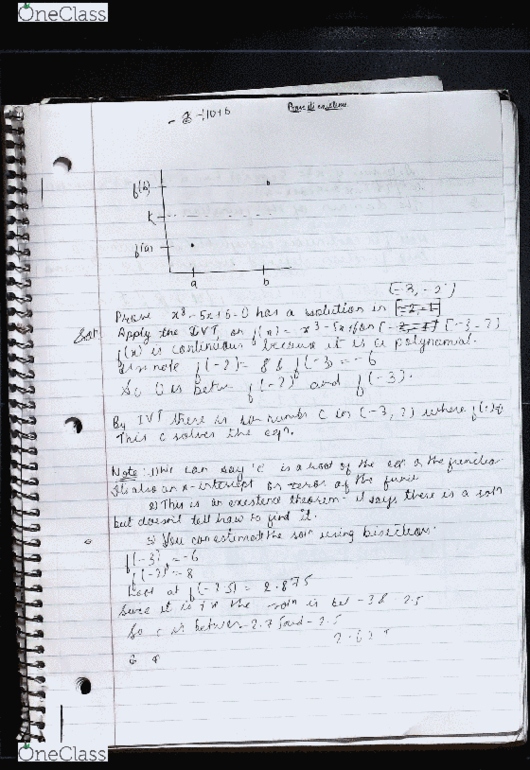 OneClass
- 8 + 10 + 6
f(b)
k
f(a)
a b
[-3, -2]
Prove x³ - 5x + 6 = 0 has a solution in
Apply the IVT on f(x) = x³ - 5x + 6 on [-3 -2]
f(x) is continuous because it is a polynomial.
note f(-2) = 8 & f(-3) = -6
So 0 is betw f(-2) and f(-3).
By IVT there is som numbr C in (-3, 2) where
This c solves the eqn.
Note: 1) We can say 'c' is a root of the eqn or the function
It's also an x-intercept or zero of the
2) This is an existend theorem - it says there is a soln
but doesn't tell how to find it.
3) You can estimate the soln using bisection.
f(-3) = -6
f(-2) = 8
Look at f(-2.5) = 2.875
Since it is the soln is bet -3 & 2.5
So c is between -2.75 and -2.5
OneClass